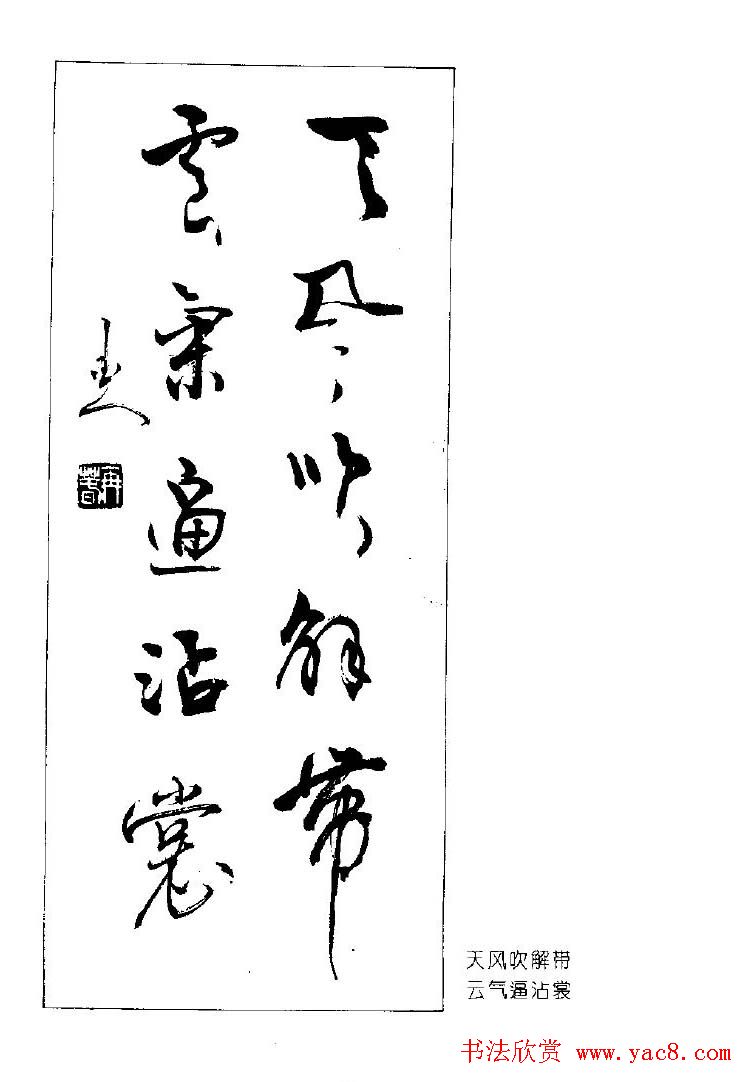 天風吹解帶
雲氣逼沾裳
天风吹解带
云气逼沾裳
书法欣赏 www.yac8.com